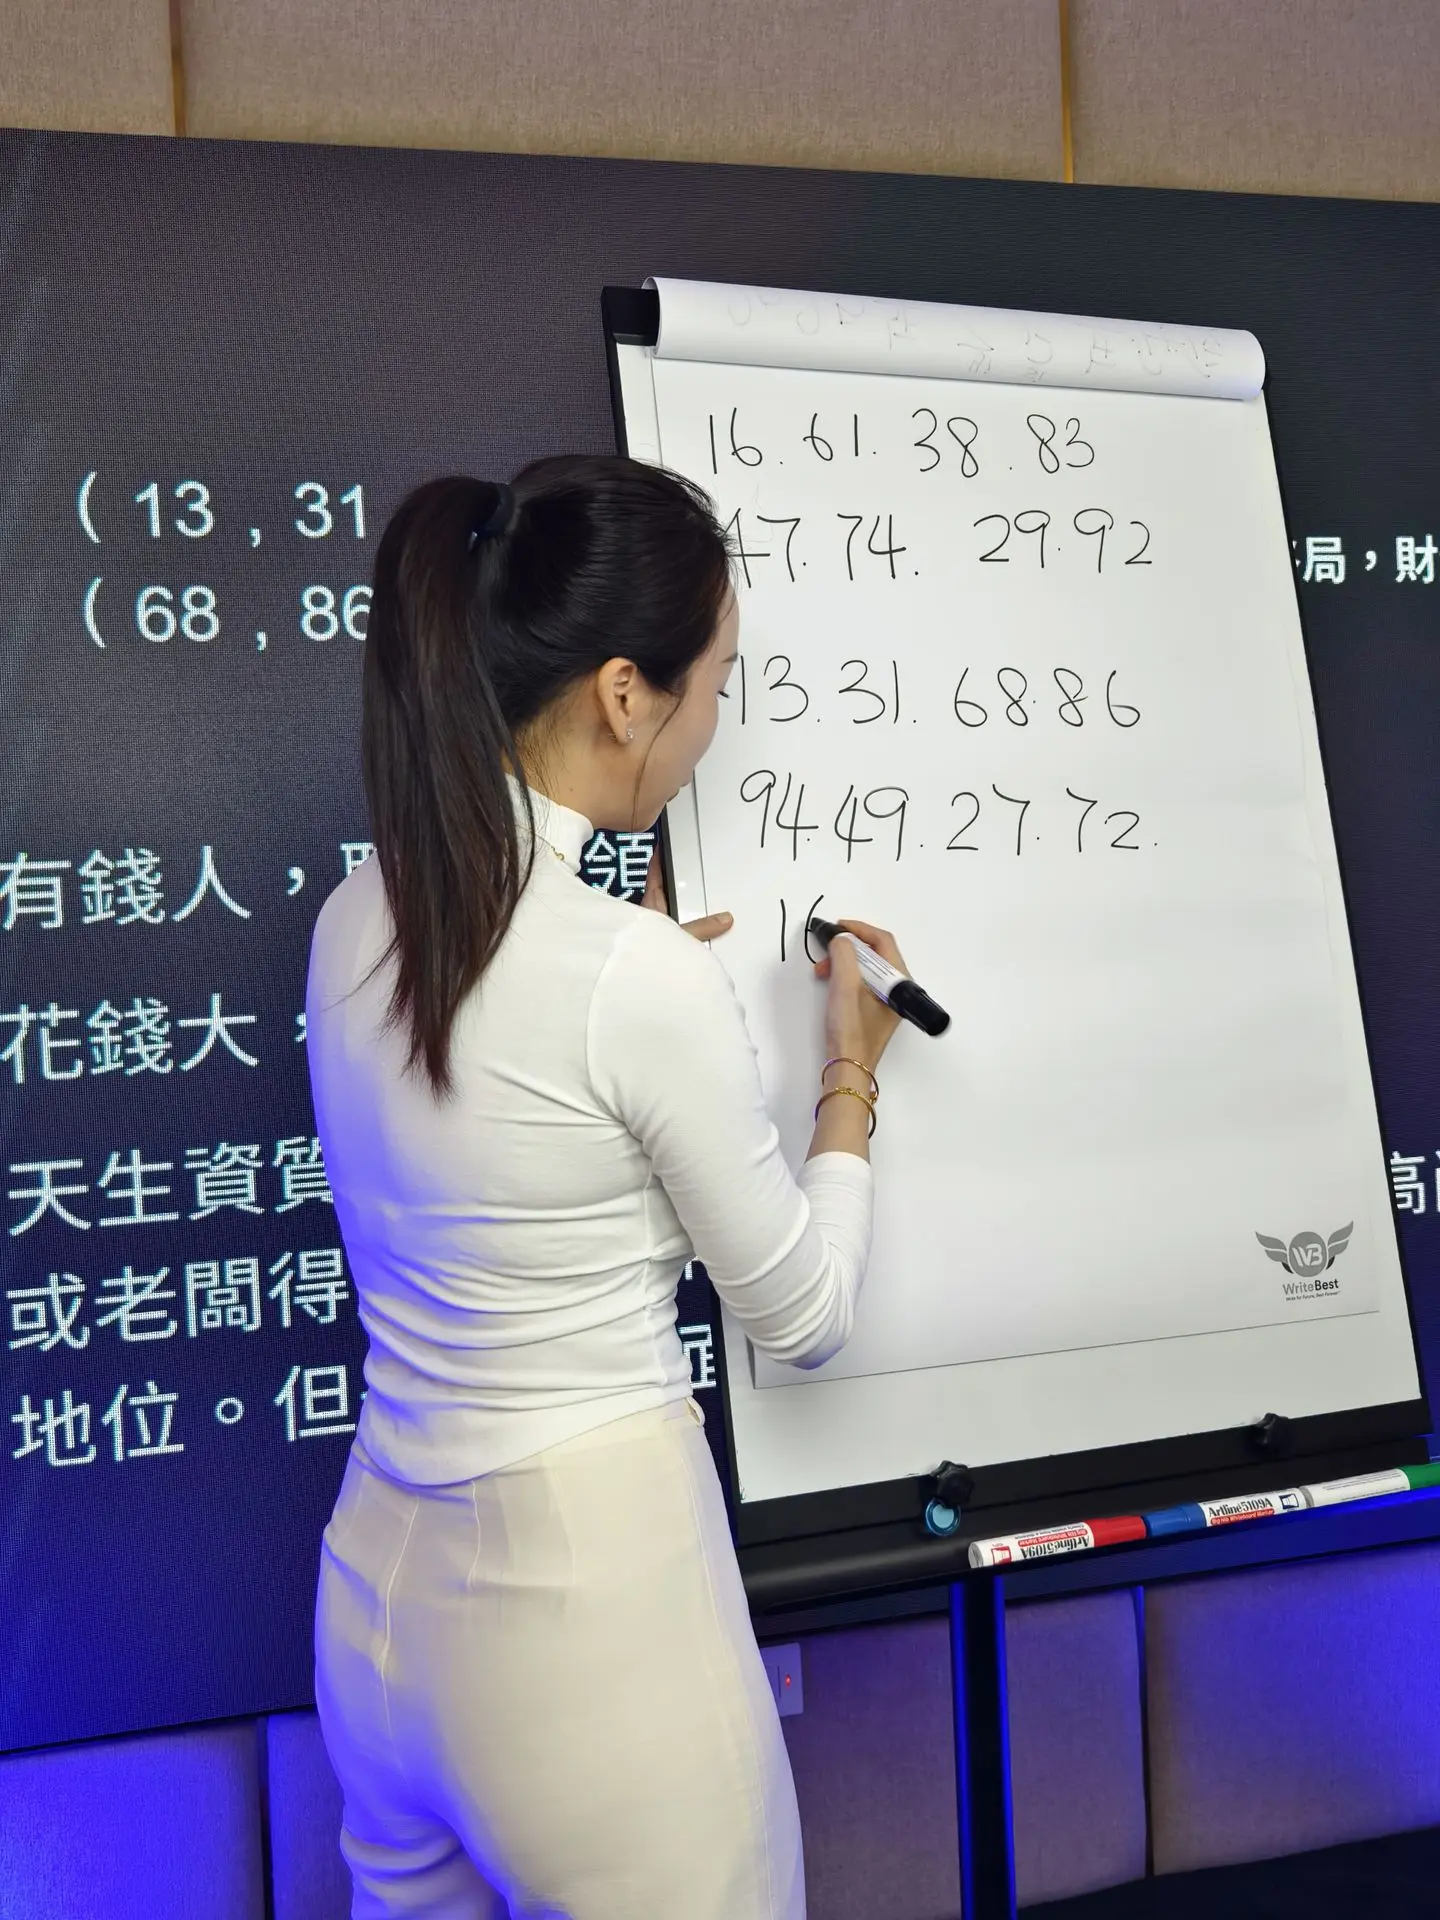 ( 13 , 31
( 68 , 86
局，財
有錢人，
領
花錢大，
天生資質
高
或老闆得
地位。但
16. 61. 38. 83
47. 74. 29. 92
13. 31. 68. 86
94. 49. 27. 72.
16
WB
WriteBest
Artline 5109A
Artline 5109A